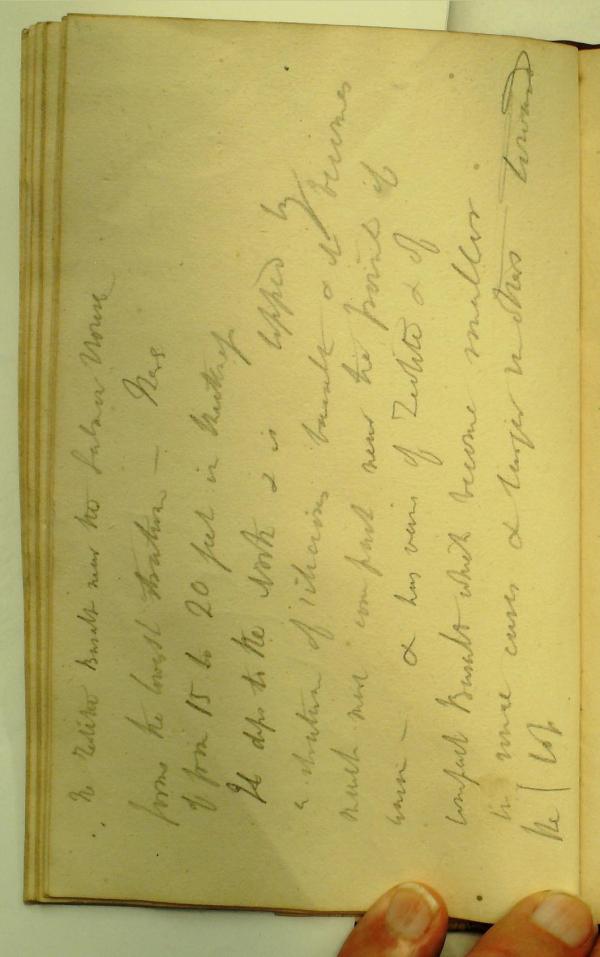 The Zeolitic Basalt near the Salmon House
forms the lowest stratum — Near
of from 15 to 20 feet in
It dips to the North & is topped by
a stratum of basalt & it becomes
much more compact near the point of
union — & has veins of Zeolite & of
compact Basalt which become smaller
in some cases & larger in others toward
the top